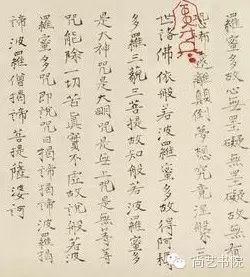 羅蜜多故心無罣礙無罣礙故無有
恐怖遠離顛倒夢想究竟涅槃三
世諸佛依般若波羅蜜多故得阿耨
多羅三藐三菩提故知般若波羅蜜多
是大神咒是大明咒是無上咒是無等等
咒能除一切苦真實不虛故說般若波
羅蜜多咒即說咒曰揭諦揭諦波羅揭
諦波羅僧揭諦菩提薩婆訶
尚艺书院